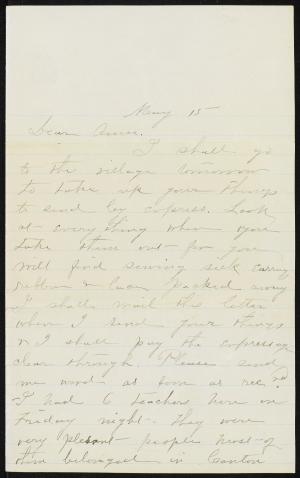 May 15
Dear Anna.
I shall go
to the village tomorrow
to take up your things
to send by express. Look
at every thing when you
take them out for you
will find sewing silk
ribbon & lace packed away
I shall mail this letter
when I send your things
& I shall pay the expressage
clear through. Please send
me word as soon as rec'd
I had 6 teachers here on
Friday night. They were
very plesant people most of
them belonged in Canton